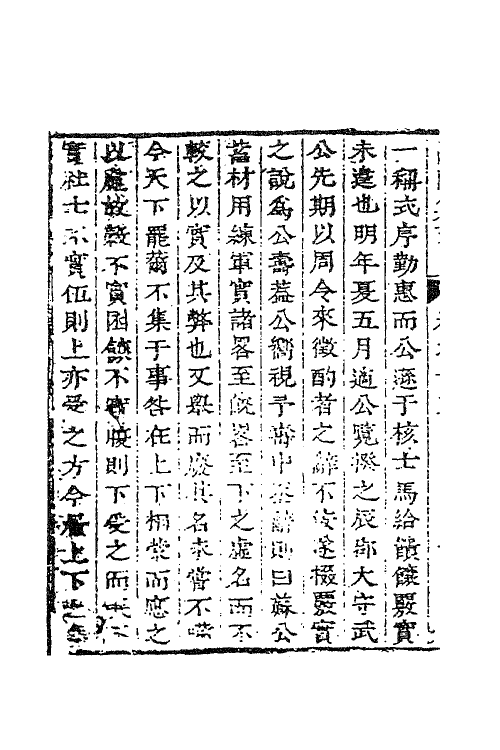 一稱式序勤惠而公遜于核士馬給饋餼覈實
未遑也明年夏五月適公覽揆之辰鄉大守武
公先期以周令來徵酌者之辭不佞遂掇覈實
之說為公壽葢公嚮視予齋中
則曰蘇公
蓄材用練軍實諸畧至
畧至下之虛名而不
較之以實及其弊也又舉而廢其名未嘗不嘆
今天下罷薾不集于事咎在上下相蒙而應之
以虛故穀不實囷餼不實廋則下受之而
實社士不實伍則上亦受之方今
上下